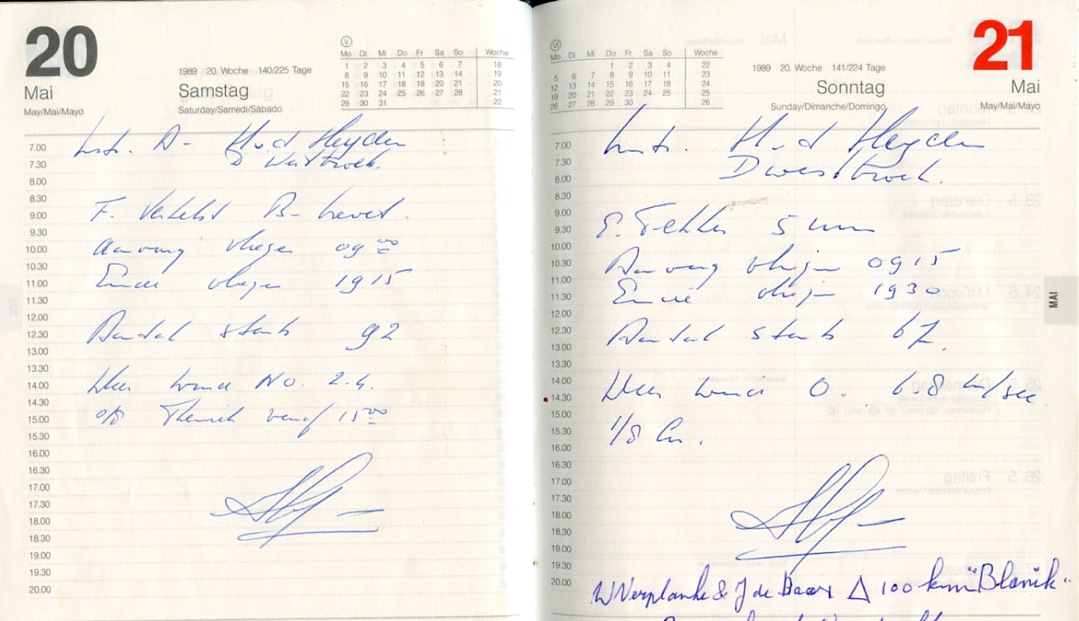 20
Mai
May/Mai/Mayo
1989 20. Woche 140/225 Tage
Samstag
Saturday/Samedi/Sábado
V
Mo Di Mi Do Fr Sa So Woche
1 2 3 4 5 6 7 18
8 9 10 11 12 13 14 19
15 16 17 18 19 20 21 20
22 23 24 25 26 27 28 21
29 30 31 22
7.00 Instr. A- H.v.d Heyden
7.30 D Westbroek.
8.00
8.30
9.00 F. B-brevet.
9.30
10.00 Aanvang vliegen 09 00
10.30
11.00 Einde vliegen 19 15
11.30
12.00
12.30 Aantal starts 92
13.00
13.30
14.00 Weer wind NO. 2.4.
14.30
15.00 0/8 Thermiek vanaf 15 00
15.30
16.00
16.30
17.00
17.30
18.00
18.30
19.00
19.30
20.00
VI
Mo Di Mi Do Fr Sa So Woche
1 2 3 4 22
5 6 7 8 9 10 11 23
12 13 14 15 16 17 18 24
19 20 21 22 23 24 25 25
26 27 28 29 30 26
1989 20. Woche 141/224 Tage
Sonntag
Sunday/Dimanche/Domingo
21
Mai
May/Mai/Mayo
7.00 Instr. H.v.d Heyden
7.30 D westbroek.
8.00
8.30
9.00
9.30 5 uur
10.00
10.30 Aanvang vliegen 09 15
11.00
11.30 Einde vliegen 19 30
12.00
12.30 Aantal starts 67.
13.00
13.30
14.00 Weer wind O. 6.8 m/sec
14.30
15.00
15.30 1/8 Cu.
16.00
16.30
17.00
17.30
18.00
18.30
19.00
19.30
20.00 W Verplanke & J de Baar △ 100 km "Blanik"
MAI